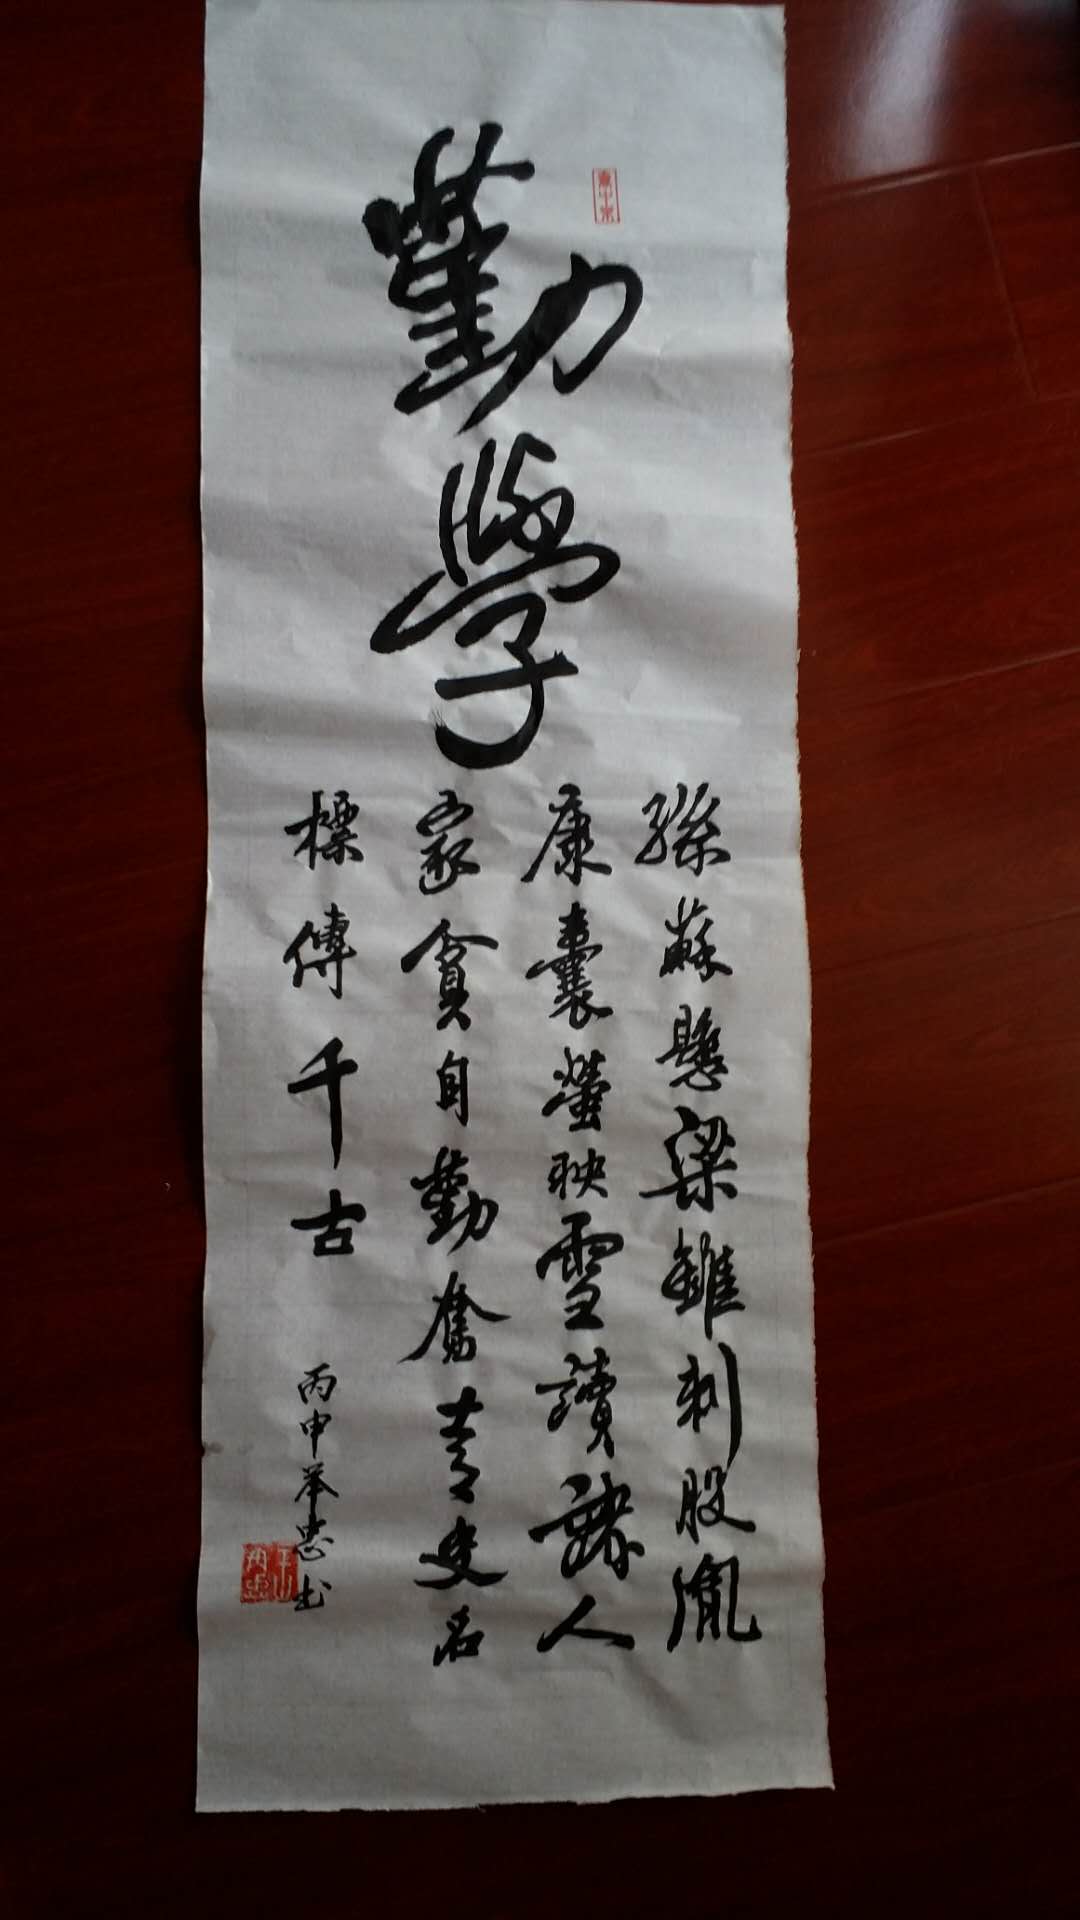 勤學
孫蘇懸梁錐刺股胤
康囊螢映雪讀諸人
家貧自勤奮青史名
標傳千古
丙申举忠书